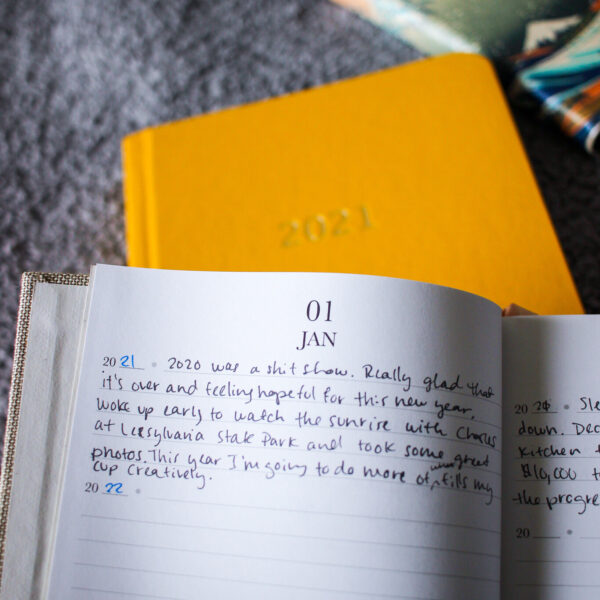 2021
01
JAN
2021 • 2020 was a shit show. Really glad that
it's over and feeling hopeful for this new year.
Woke up early to watch the sunrise with Charles
at Leesylvania State Park and took some great
photos. This year I'm going to do more of what fills my
cup creatively.
2022 •
20 • Sle
down. Dec
Kitchen
$10,000 t
the progre
20 •